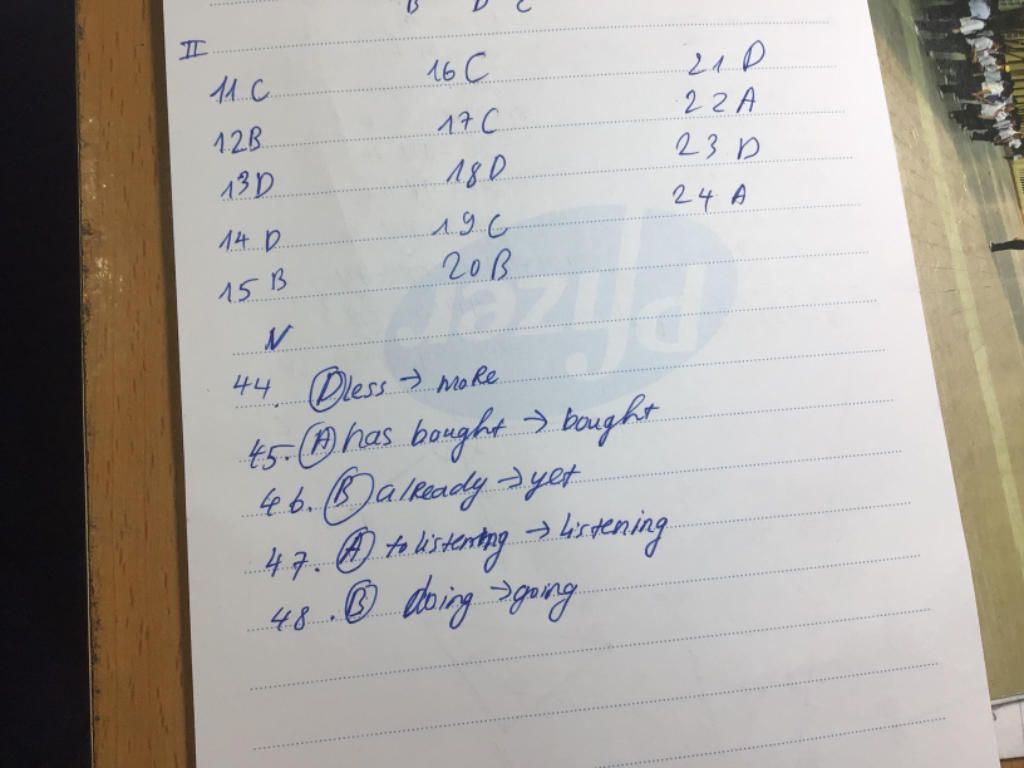 B D C
II
11 C 16 C 21 D
12 B 17 C 22 A
13 D 18 D 23 D
14 D 19 C 24 A
15 B 20 B
N
44. D less → more
45. A has bought → bought
46. B already → yet
47. A to listening → listening
48. B doing → going
Pfizer